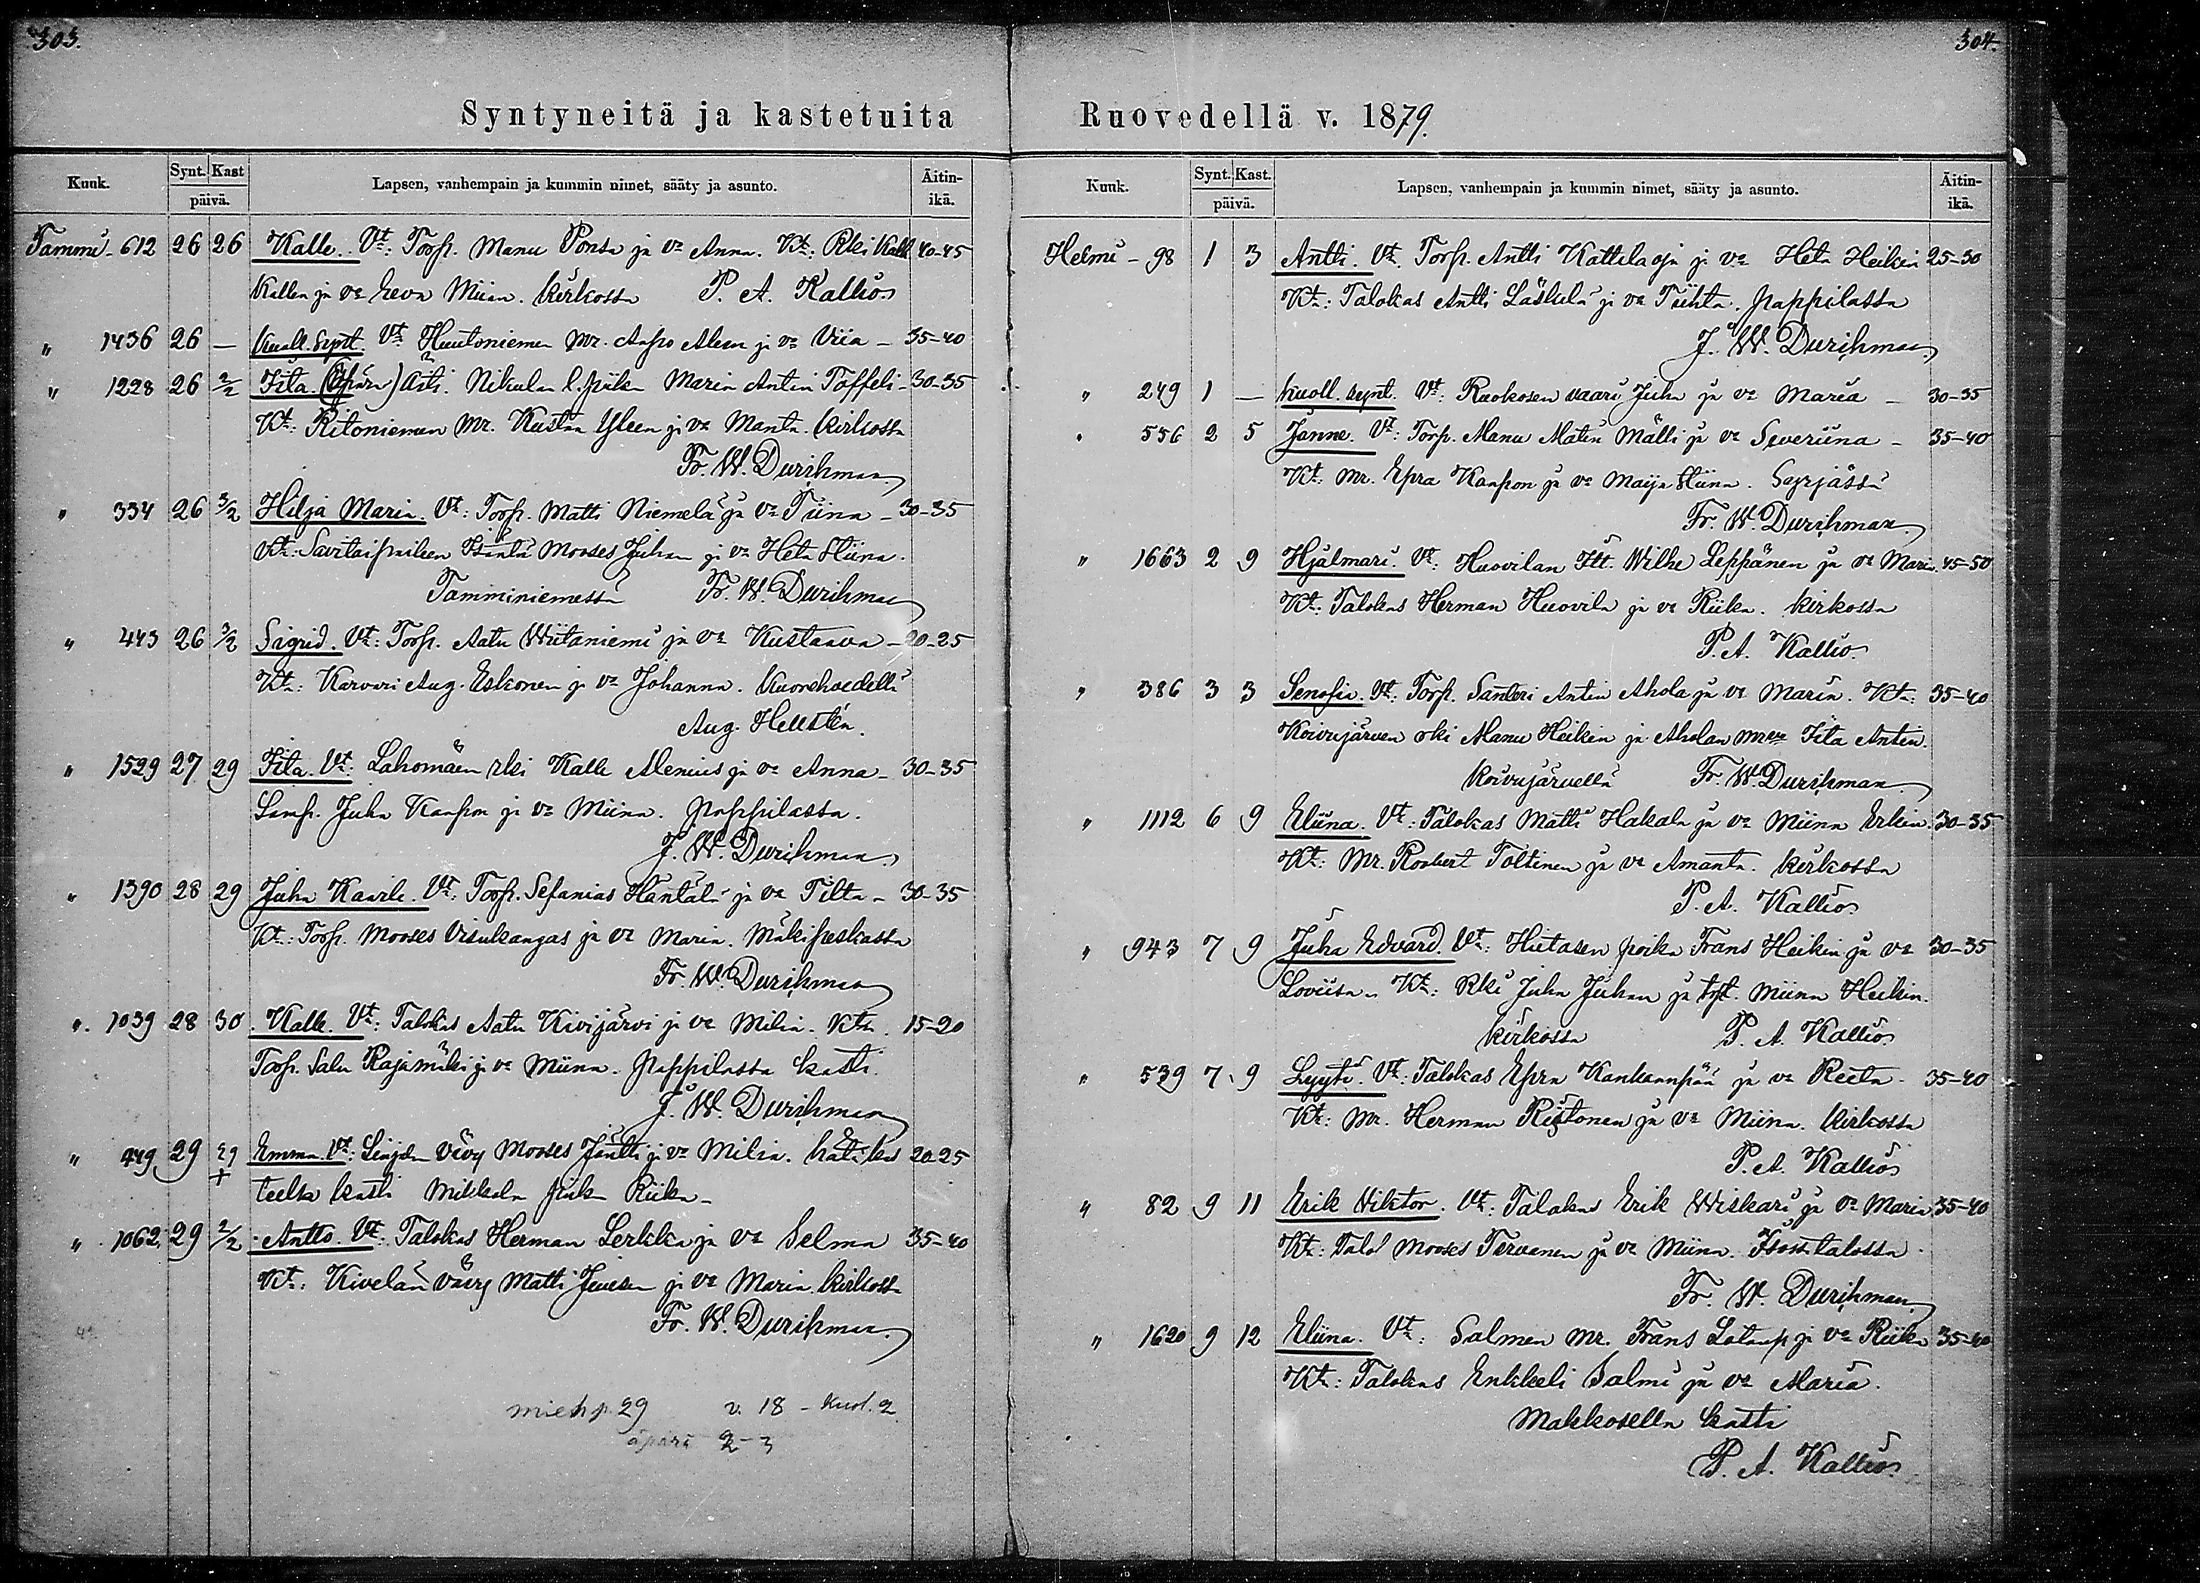 303.
Syntyneitä ja kastetuita
Kuuk.
Synt. Kast
päivä.
Lapsen, vanhempain ja kummin nimet, sääty ja asunto.
Äitin-
ikä.
Tammi - 612 26 26 Kalle. Vt: Torp. Manu Ponsa ja vo Anna. Kt: Rki Kalle 40-45
Kallen ja vo Eeva Miina. Kirkossa P. A. Kallio
" 1436 26 — Kuoll. synt. Vt: Huutoniemen Mr. Aapo Alen ja vo Viia - 35-40
" 1228 26 2/2 Fita. (Äpärä) Äiti. Nikulan l. piika Maria Antin Töffeli - 30-35
Kt: Ritoniemen Mr. Kustaa Yleen ja vo Manta. Kirkossa
Fr. W. Durchman
" 334 26 3/2 Hilja Maria. Vt: Torp. Matti Niemelä ja vo Tiina - 30-35
Kt: Savitaipaileen Mooses Juhan ja vo Heta Stiina.
Tamminiemessä Fr. W. Durchman
" 443 26 3/2 Sigrid. Vt: Torp. Aatu Wiitaniemi ja vo Kustaava - 20-25
Kt: Karvari Aug. Eskonen ja vo Johanna. Kuorehvedellä
Aug. Hellstén.
" 1529 27 29 Fita. Vt: Lahomäen rki Kalle Alenius ja vo Anna - 30-35
Lamp. Juha Kaapon ja vo Miina. Pappilassa.
F. W. Durchman
" 1390 28 29 Juha Kaarle. Vt: Torp. Sefanias Häntälä ja vo Tilta - 30-35
Kt: Torp. Mooses Visukangas ja vo Maria. Mäkipeskassa
Fr. W. Durchman
" 1039 28 30 Kalle. Vt: Talokas Aatu Kivijärvi ja vo Milia. Kt: 15-20
Torp. Salu Rajamäki ja vo Miina. Pappilassa kasti.
F. W. Durchman
" 449 29 29 Emma. Vt: vävy Mooses Jäntti ja vo Milia. Hätäkas 20-25
+
teelta kasti Mikkola piika Riika -
" 1062 29 2/2 Antto. Vt: Talokas Herman Lerkka ja vo Selma 35-40
Kt: Kivelän vävy Matti Jussen ja vo Maria. Kirkossa
Fr. W. Durchman.
miehp. 29 v. 18 - kuol. 2
äpärä 2 - 3
304.
Ruovedellä v. 1879.
Kuuk.
Synt. Kast.
päivä.
Lapsen, vanhempain ja kummin nimet, sääty ja asunto.
Äitin-
ikä.
Helmi - 98 1 3 Antti. Vt: Torp. Antti Kattilaoja ja vo Heta Heikin 25-30
Kt: Talokas Antti Läskelä ja vo Tiihta. Pappilassa
F. W. Durchman
" 249 1 — Kuoll. synt. Vt: Ruokosen vaari Juha ja vo Maria - 30-35
" 556 2 5 Janne. Vt: Torp. Manu Matin Mälli ja vo Severiina - 35-40
Kt: Mr. Epra Kaapon ja vo Maija Stiina. Syrjässä
Fr. W. Durchman
" 1663 2 9 Hjalmari. Vt: Huovilan Itt. Wilhe Leppänen ja vo Maria. 45-50
Kt: Talokas Herman Huovila ja vo Riika. Kirkossa
P. A. Kallio
" 386 3 3 Senofia. Vt: Torp. Santeri Antin Ahola ja vo Maria. Kt: 35-40
Koivujärven rki Manu Heikin ja Aholan mrvo Fita Antin.
Koivujärvellä Fr. W. Durchman
" 1112 6 9 Eliina. Vt: Talokas Matti Hakala ja vo Miina Erkin. 30-35
Kt: Mr. Roobert Toltinen ja vo Amanta. Kirkossa
P. A. Kallio
" 943 7 9 Juha Edvard. Vt: Hietasen poika Frans Heikin ja vo 30-35
Loviisa. Kt: Rki Juha Juhan ja tyt. Miina Heikin.
Kirkossa P. A. Kallio
" 539 7 9 Lyyti. Vt: Talokas Epra Kankaanpää ja vo Reeta. 35-40
Kt: Mr. Herman Ristonen ja vo Miina. Kirkossa
P. A. Kallio
" 82 9 11 Erik Viktor. Vt: Talokas Erik Wiskari ja vo Maria 35-40
Kt: Talol Mooses Tervanen ja vo Miina. Isossatalossa.
Fr. W. Durchman
" 1620 9 12 Eliina. Vt: Salmen mr. Frans Lotanp ja vo Riika 35-40
Kt: Talokas Enkkeli Salmi ja vo Maria.
Makkosella kasti
P. A. Kallio